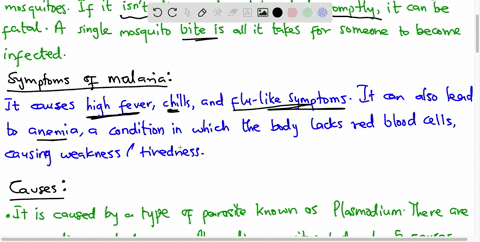 mosquitoes. If it isn't promptly, it can be
fatal. A single mosquito bite is all it takes for someone to become
infected.
Symptoms of malaria:
It causes high fever, chills, and flu-like symptoms. It can also lead
to anemia, a condition in which the body lacks red blood cells,
causing weakness / tiredness.
Causes:
• It is caused by a type of parasite known as Plasmodium. There are